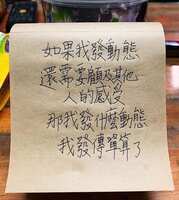 如果我發動態
還需要顧及其他
人的感受
那我發什麼動態
我發傳單算了